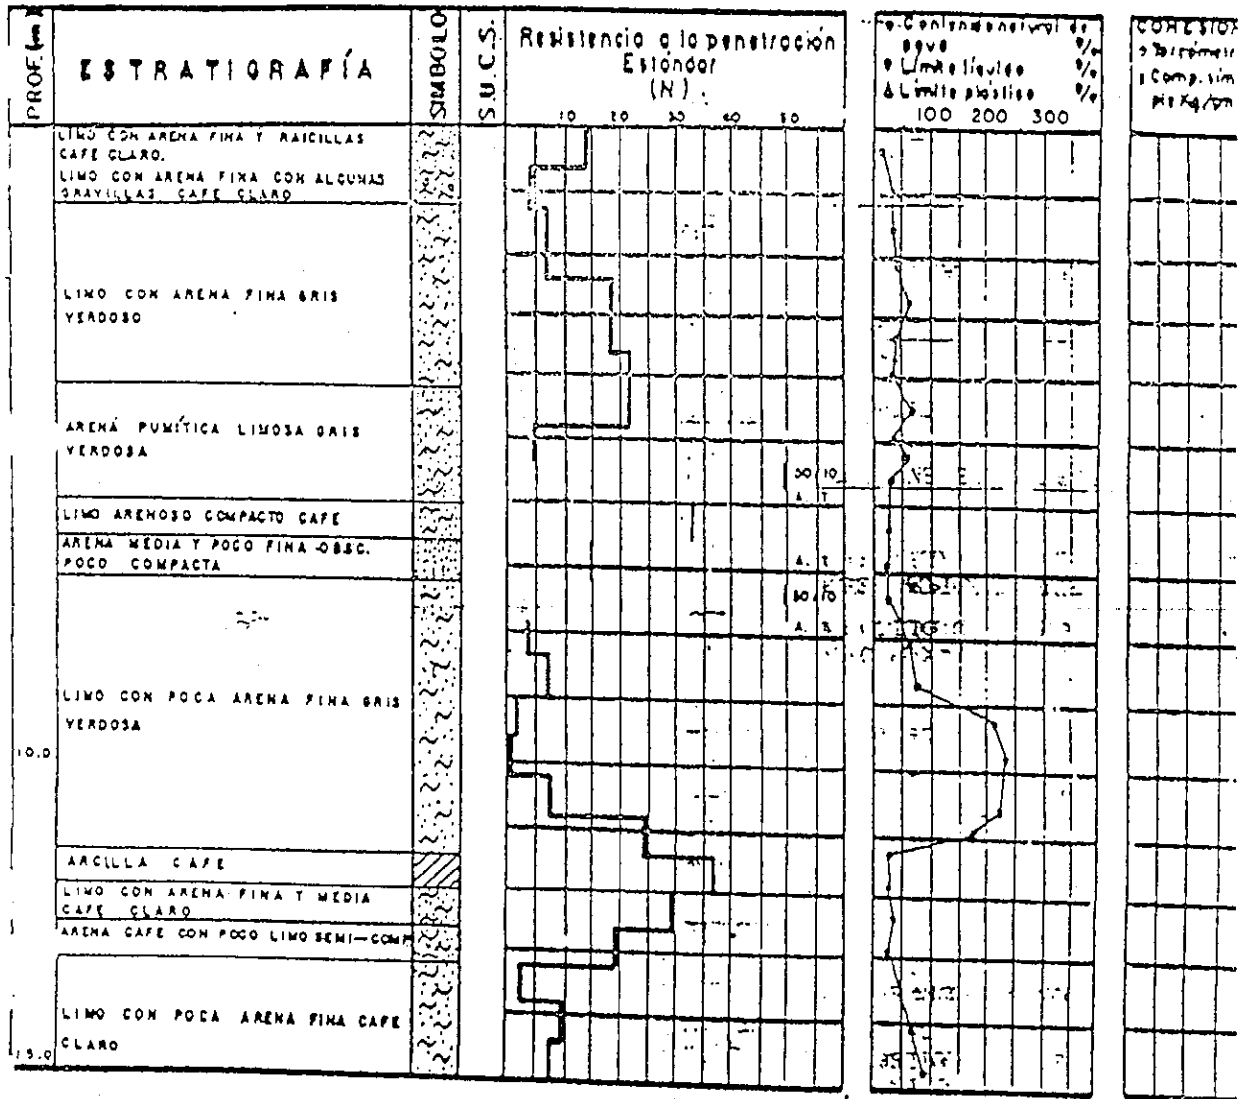 PROF. (en M)
ESTRATIGRAFÍA
SIMBOLO
S.U.C.S.
Resistencia a la penetración
Estándar
(N)
10 20 30 40 50
Contenido natural de
agua %
Límite líquido %
Δ Límite plástico %
100 200 300
COHESION
Torcómetr
Comp. sim
ple Kg/cm
LIMO CON ARENA FINA Y RAICILLAS
CAFE CLARO.
LIMO CON ARENA FINA CON ALGUNAS
GRAVILLAS CAFE CLARO
LIMO CON ARENA FINA GRIS
VERDOSO
ARENA PUMÍTICA LIMOSA GRIS
VERDOSA
50/10
A. T
LIMO ARENOSO COMPACTO CAFE
ARENA MEDIA Y POCO FINA OBSC.
POCO COMPACTA
A. T
50/10
LIMO CON POCA ARENA FINA GRIS
VERDOSA
10.0
ARCILLA CAFE
LIMO CON ARENA FINA Y MEDIA
CAFE CLARO
ARENA CAFE CON POCO LIMO SEMI-COMP
LIMO CON POCA ARENA FINA CAFE
CLARO
15.0